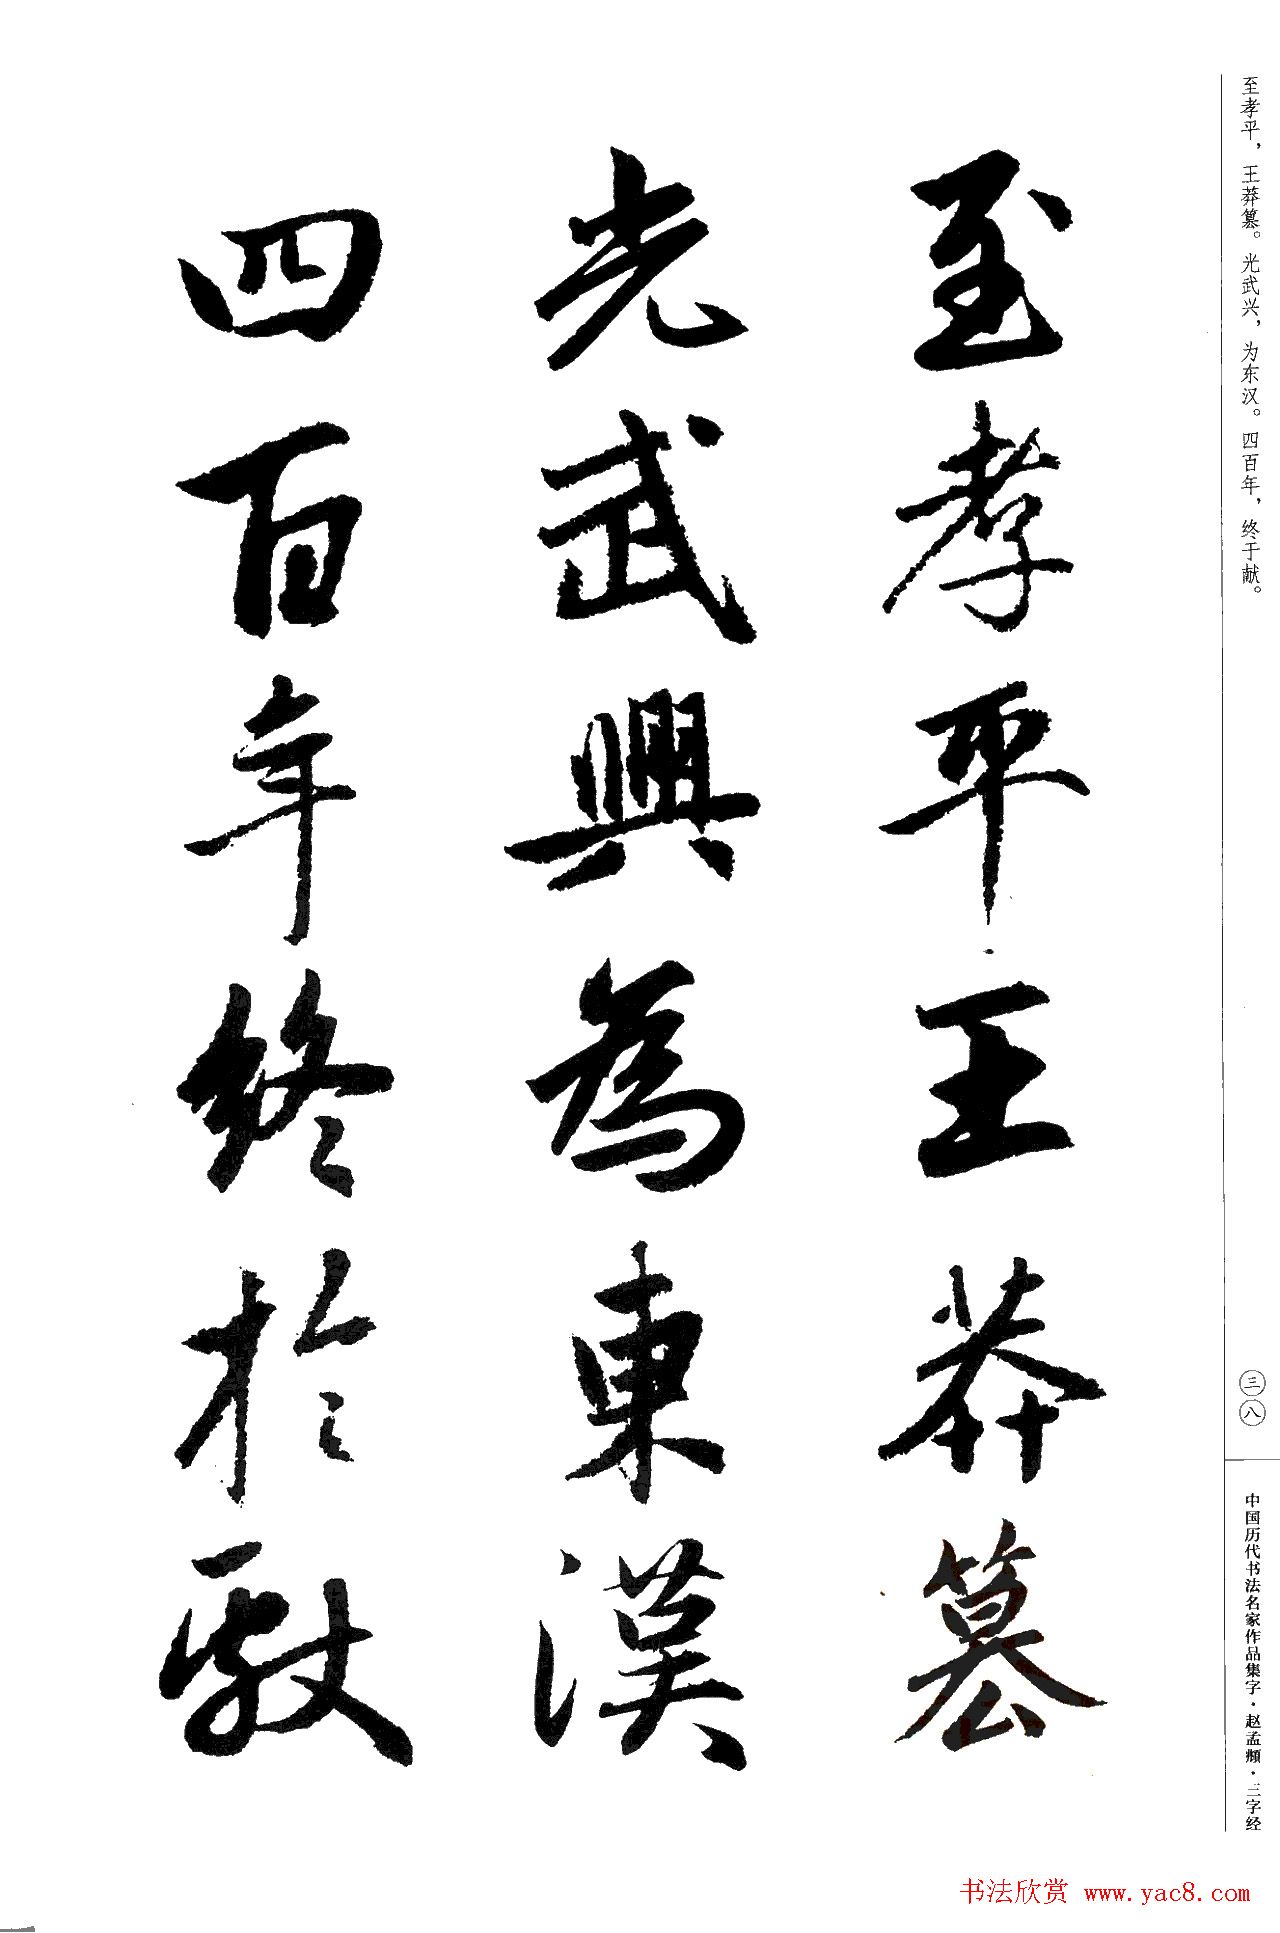 至孝平，王莽篡。光武兴，为东汉。四百年，终于献。
至孝平王莽篡
光武興為東漢
四百年終於獻
三八
中国历代书法名家作品集字·赵孟頫·三字经
书法欣赏 www.yac8.com